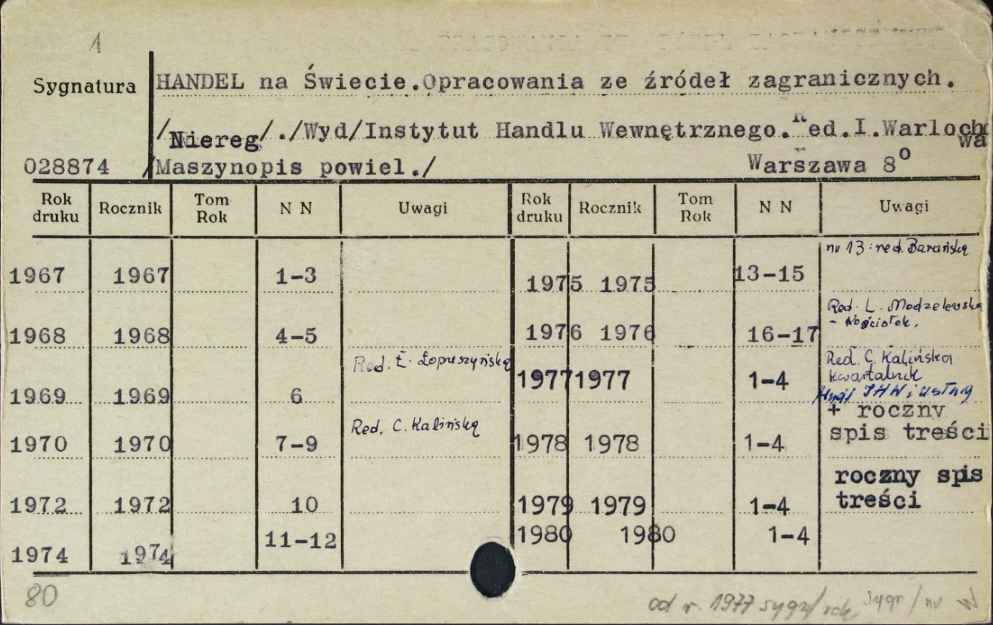 1
Sygnatura HANDEL na Świecie.Opracowania ze źródeł zagranicznych.
/Niereg/./Wyd/Instytut Handlu Wewnętrznego.Red.I.Warloch
wa
028874 /Maszynopis powiel./ Warszawa 8°
Rok druku Rocznik Tom Rok N N Uwagi Rok druku Rocznik Tom Rok N N Uwagi
1967 1967 1-3
1968 1968 4-5
1969 1969 6 Red. Ł. Łopuszyńska
1970 1970 7-9 Red. C. Kalińska
1972 1972 10
1974 1974 11-12
1975 1975 13-15 nr 13: red. Barańska
1976 1976 16-17 Red. L. Modzelewska
- Kościołek.
1977 1977 1-4 Red. C. Kalińska
kwartalnik
IHW i
+ roczny
spis treści
1978 1978 1-4
1979 1979 1-4 roczny spis
treści
1980 1980 1-4
80
od r. 1977 sygn/rok sygn/nr